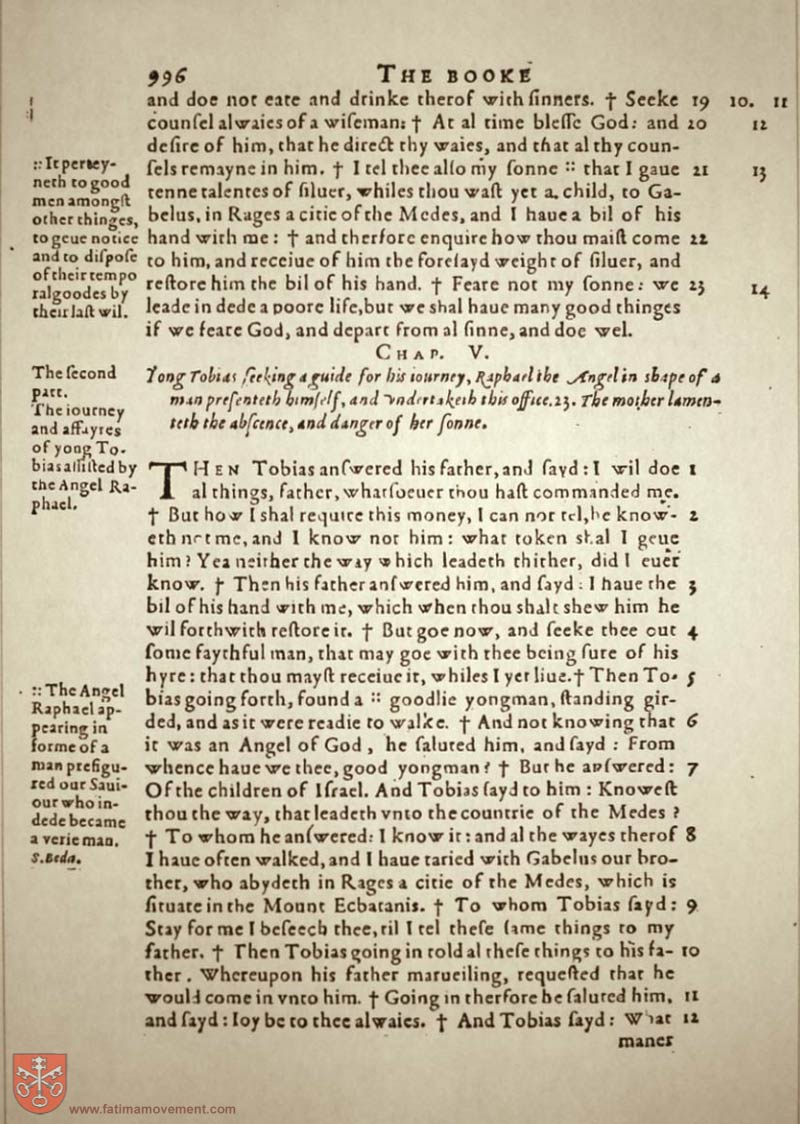 996 THE BOOKE
and doe not eate and drinke therof with sinners. † Seeke 19 10. 11
counsel alwaies of a wiseman: † At al time blesse God: and 20 12
desire of him, that he direct thy waies, and that al thy coun-
sels remayne in him. † I tel thee also my sonne :: that I gaue 21 13
tenne talentes of siluer, whiles thou wast yet a child, to Ga-
belus, in Rages a citie of the Medes, and I haue a bil of his
hand with me: † and therfore enquire how thou maist come 22
to him, and receiue of him the foresayd weight of siluer, and
restore him the bil of his hand. † Feare not my sonne: we 23 14
leade in dede a poore life, but we shal haue many good thinges
if we feare God, and depart from al sinne, and doe wel.
:: It pertey-
neth to good
men amongst
other thinges,
to geue notice
and to dispose
of their tempo
ral goodes by
their last wil.
CHAP. V.
Yong Tobias seeking a guide for his iourney, Raphael the Angel in shape of a
man presenteth himself, and vndertaketh this office. 23. The mother lamen-
teth the abscence, and danger of her sonne.
The second
part.
The iourney
and affayres
of yong To-
bias assisted by
the Angel Ra-
phael.
THEN Tobias answered his father, and sayd: I wil doe 1
al things, father, whatsoeuer thou hast commanded me.
† But how I shal require this money, I can not tel, he know- 2
eth not me, and I know not him: what token shal I geue
him? Yea neither the way which leadeth thither, did I euer
know. † Then his father answered him, and sayd: I haue the 3
bil of his hand with me, which when thou shalt shew him he
wil forthwith restore it. † But goe now, and seeke thee out 4
some faythful man, that may goe with thee being sure of his
hyre: that thou mayst receiue it, whiles I yet liue. † Then To- 5
bias going forth, found a :: goodlie yongman, standing gir-
ded, and as it were readie to walke. † And not knowing that 6
it was an Angel of God, he saluted him, and sayd: From
whence haue we thee, good yongman? † But he answered: 7
Of the children of Israel. And Tobias sayd to him: Knowest
thou the way, that leadeth vnto the countrie of the Medes?
† To whom he answered: I know it: and al the wayes therof 8
I haue often walked, and I haue taried with Gabelus our bro-
ther, who abydeth in Rages a citie of the Medes, which is
situate in the Mount Ecbatanis. † To whom Tobias sayd: 9
Stay for me I beseech thee, til I tel these same things to my
father. † Then Tobias going in told al these things to his fa- 10
ther. Whereupon his father marueiling, requested that he
would come in vnto him. † Going in therfore he saluted him, 11
and sayd: Ioy be to thee alwaies. † And Tobias sayd: What 12
maner
:: The Angel
Raphael ap-
pearing in
forme of a
man prefigu-
red our Saui-
our who in-
dede became
a verie man.
S. Beda.
www.fatimamovement.com